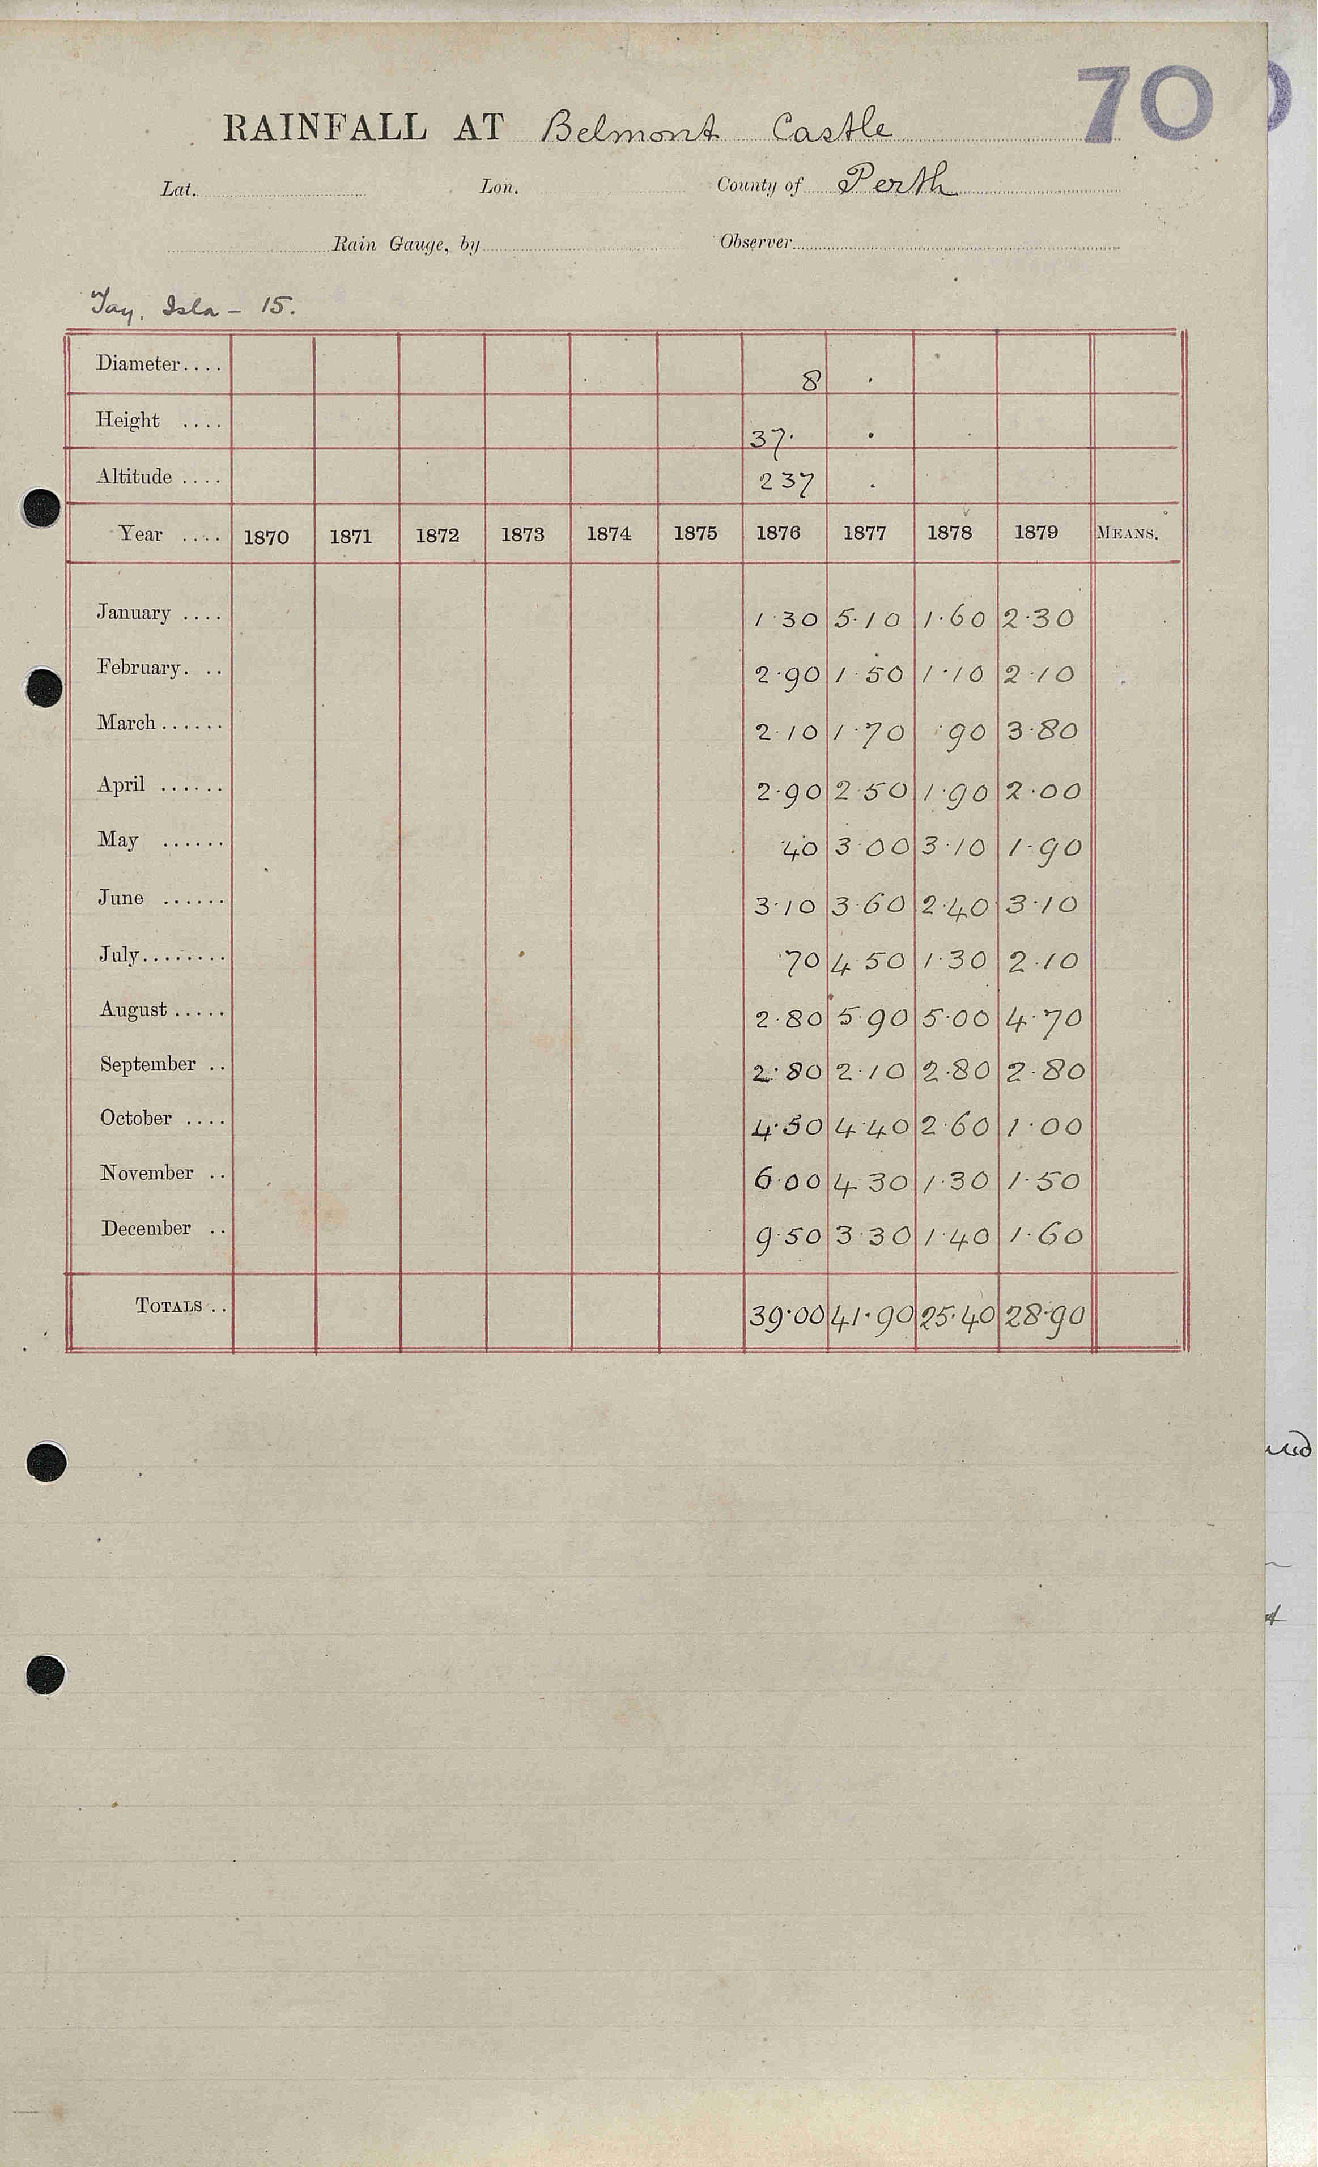 70
RAINFALL AT Belmont Castle
Lat. Lon. County of Perth
Rain Gauge, by Observer
Tay, Isla - 15.
Diameter.... 8 .
Height .... 37. .
Altitude .... 237 .
Year .... 1870 1871 1872 1873 1874 1875 1876 1877 1878 1879 MEANS.
January .... 1.30 5.10 1.60 2.30
February. .. 2.90 1.50 1.10 2.10
March...... 2.10 1.70 .90 3.80
April ...... 2.90 2.50 1.90 2.00
May ...... .40 3.00 3.10 1.90
June ...... 3.10 3.60 2.40 3.10
July........ .70 4.50 1.30 2.10
August ..... 2.80 5.90 5.00 4.70
September .. 2.80 2.10 2.80 2.80
October .... 4.50 4.40 2.60 1.00
November .. 6.00 4.30 1.30 1.50
December .. 9.50 3.30 1.40 1.60
TOTALS .. 39.00 41.90 25.40 28.90